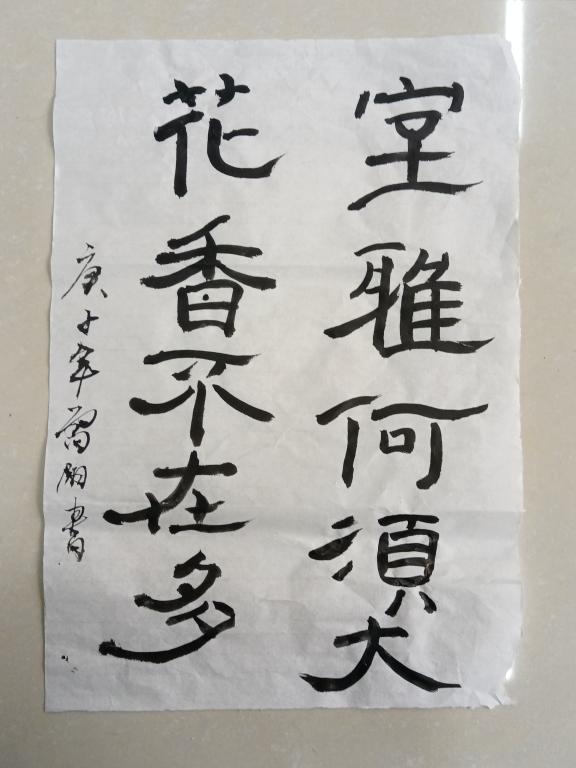 室雅何須大
花香不在多
庚子年書